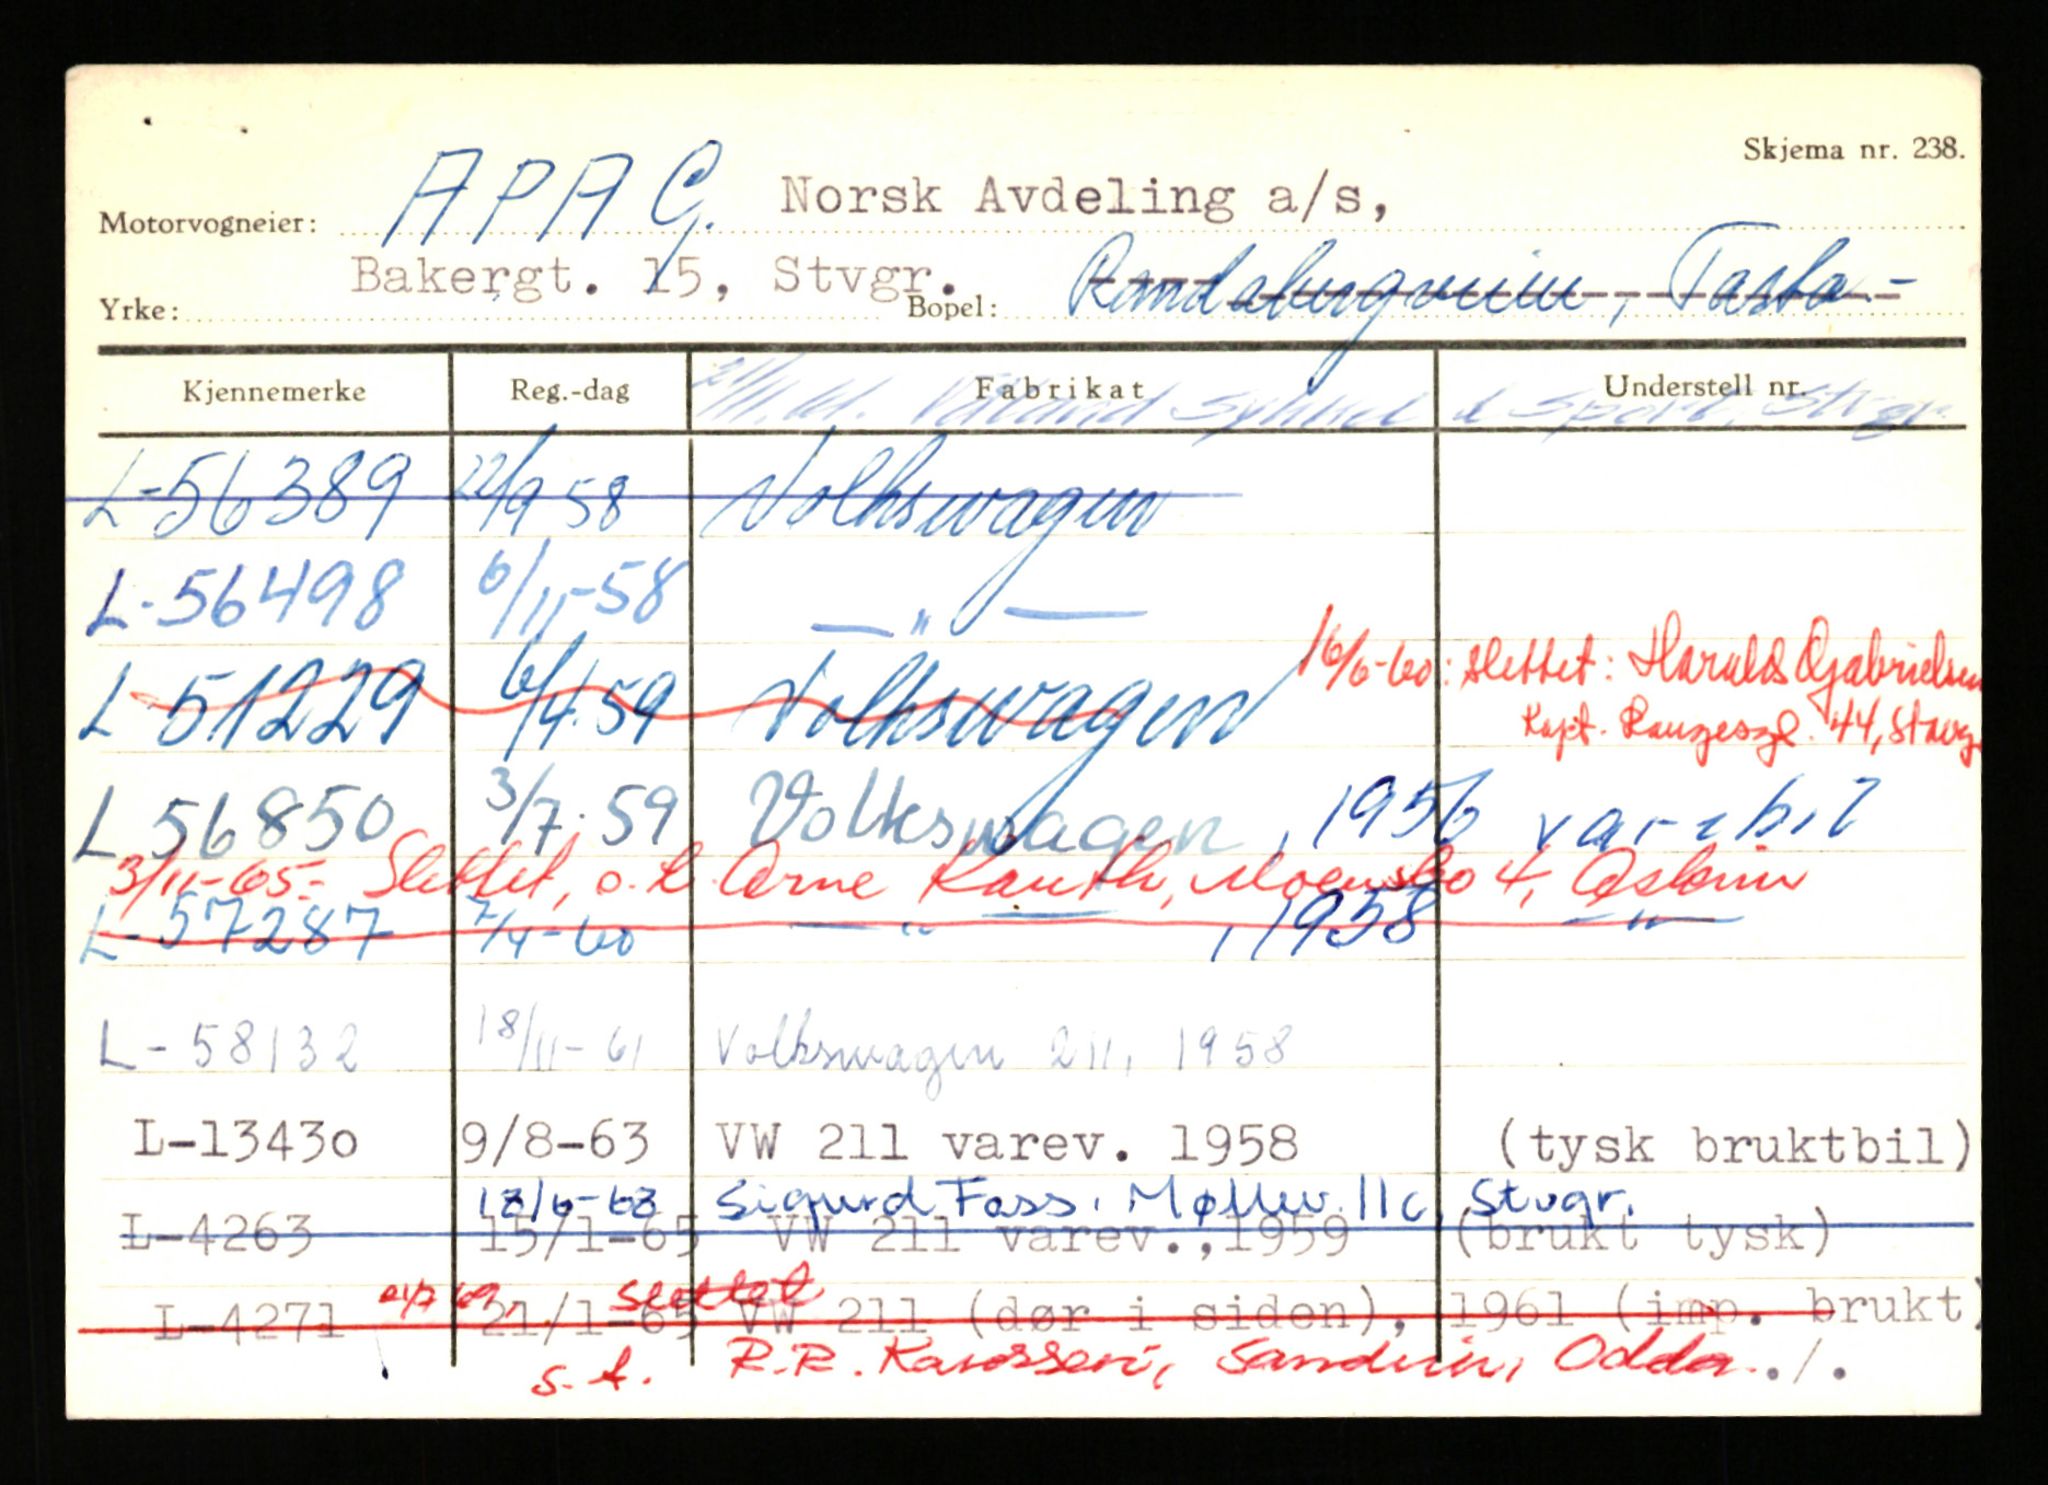 Skjema nr. 238.
Motorvogneier: APAG. Norsk Avdeling a/s,
Bakergt. 15, Stvgr.
Yrke: Bopel: Randabergveien, Tasta.-
Kjennemerke Reg.-dag Fabrikat Understell nr.
& Sport, Stvgr.
L-56389 22/9 58 Volkswagen
L-56498 6/11-58 — " —
16/6-60: slettet: Harald Gabrielsen
L-51229 6/4.59 Volkswagen Kapt. 44, Stavg
L-56850 3/7.59 Volkswagen, 1956 varebil
3/11-65- Slettet, o.t. Arne 4, 
L-57287 7/4-60 — " — , 1958 — " —
L-58132 18/11-61 Volkswagen 211, 1958
L-13430 9/8-63 VW 211 varev. 1958 (tysk bruktbil)
Sigurd Foss, Møllev. 11c, Stvgr.
L-4263 15/1-65 VW 211 varev.,1959 (brukt tysk)
slettet
L-4271 21/1-65 VW 211 (dør i siden), 1961 (imp. brukt)
s.t. R.R. Karosseri, Odda../.